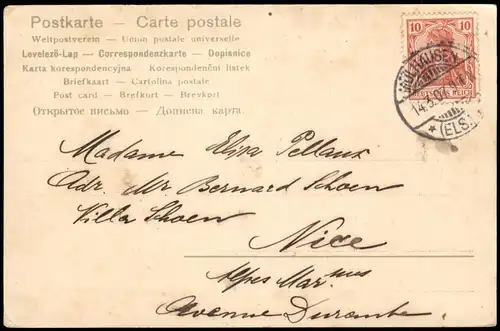 Postkarte — Carte postale
Weltpostverein — Union postale universelle
Levelező-Lap — Correspondenzkarte — Dopisnice
Karta korespondencyjna — Korespondenční lístek
Briefkaart — Cartolina postale
Post card — Brefkort — Brevkort
Открытое письмо — Дописна карта.
10 10
DEUTSCHES REICH
MÜLHAUSEN
14.3.0
* (ELS.)
Madame Elisa Pellaux
Adr. Mr Bernard Schoen
Villa Schoen
Nice
Alpes Mar.mes
Avenue Durante.